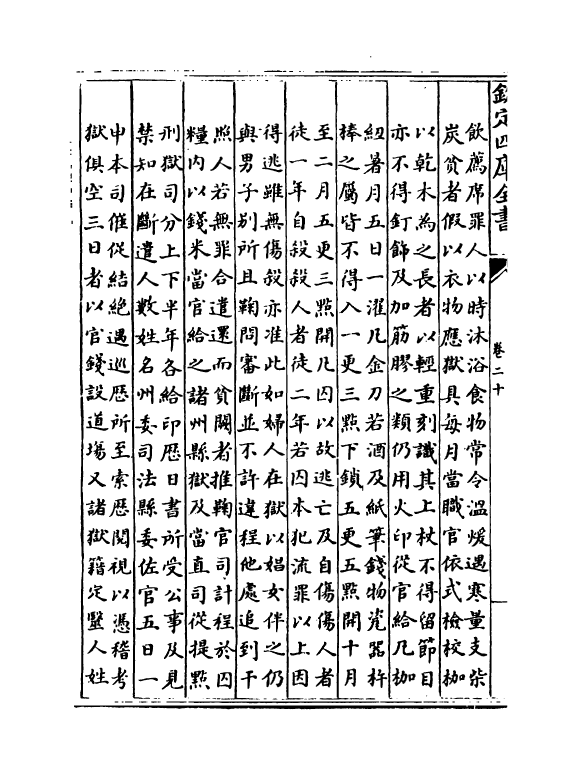 欽定四庫全書
卷二十
飲薦席罪人以時沐浴食物常令溫煖遇寒量支柴
炭貧者假以衣物應獄具每月當職官依式檢校枷
以乾木為之長者以輕重刻識其上杖不得留節目
亦不得釘飾及加筋膠之類仍用火印從官給凡枷
紐暑月五日一濯凡金刀若酒及紙筆錢物瓷器杵
棒之屬皆不得入一更三點下鎖五更五點開十月
至二月五更三點開凡囚以故逃亡及自傷傷人者
徒一年自殺殺人者徒二年若囚本犯流罪以上因
得逃雖無傷殺亦准此如婦人在獄以娼女伴之仍
與男子别所且鞠問審斷並不許違程他處追到干
照人若無罪合遣還而貧闕者推鞠官司計程於囚
糧内以錢米當官給之諸州縣獄及當直司從提點
刑獄司分上下半年各給印歴日書所受公事及見
禁知在斷遣人數姓名州委司法縣委佐官五日一
申本司催促結絶遇巡歴所至索歴閱視以憑稽考
獄俱空三日者以官錢設道場又諸獄籍定毉人姓